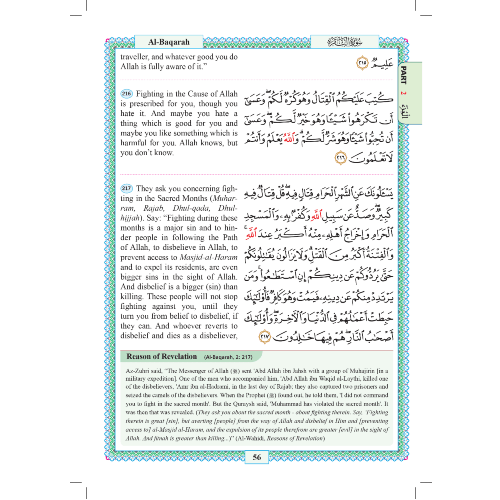 Al-Baqarah
سُورَةُ البَقَرَةِ
traveller, and whatever good you do
Allah is fully aware of it."
عَلِيمٌ ﴿٢١٥﴾
PART 2
216 Fighting in the Cause of Allah
is prescribed for you, though you
hate it. And maybe you hate a
thing which is good for you and
maybe you like something which is
harmful for you. Allah knows, but
you don't know.
كُتِبَ عَلَيْكُمُ ٱلْقِتَالُ وَهُوَ كُرْهٌ لَّكُمْ وَعَسَىٰٓ
أَن تَكْرَهُوا۟ شَيْـًٔا وَهُوَ خَيْرٌ لَّكُمْ وَعَسَىٰٓ
أَن تُحِبُّوا۟ شَيْـًٔا وَهُوَ شَرٌّ لَّكُمْ وَٱللَّهُ يَعْلَمُ وَأَنتُمْ
لَا تَعْلَمُونَ ﴿٢١٦﴾
217 They ask you concerning figh-
ting in the Sacred Months (Muhar-
ram, Rajab, Dhul-qada, Dhul-
hijjah). Say: "Fighting during these
months is a major sin and to hin-
der people in following the Path
of Allah, to disbelieve in Allah, to
prevent access to Masjid al-Haram
and to expel its residents, are even
bigger sins in the sight of Allah.
And disbelief is a bigger (sin) than
killing. These people will not stop
fighting against you, until they
turn you from belief to disbelief, if
they can. And whoever reverts to
disbelief and dies as a disbeliever,
يَسْـَٔلُونَكَ عَنِ ٱلشَّهْرِ ٱلْحَرَامِ قِتَالٍ فِيهِ قُلْ قِتَالٌ فِيهِ
كَبِيرٌ وَصَدٌّ عَن سَبِيلِ ٱللَّهِ وَكُفْرٌۢ بِهِۦ وَٱلْمَسْجِدِ
ٱلْحَرَامِ وَإِخْرَاجُ أَهْلِهِۦ مِنْهُ أَكْبَرُ عِندَ ٱللَّهِ
وَٱلْفِتْنَةُ أَكْبَرُ مِنَ ٱلْقَتْلِ وَلَا يَزَالُونَ يُقَـٰتِلُونَكُمْ
حَتَّىٰ يَرُدُّوكُمْ عَن دِينِكُمْ إِنِ ٱسْتَطَـٰعُوا۟ وَمَن
يَرْتَدِدْ مِنكُمْ عَن دِينِهِۦ فَيَمُتْ وَهُوَ كَافِرٌ فَأُو۟لَـٰٓئِكَ
حَبِطَتْ أَعْمَـٰلُهُمْ فِى ٱلدُّنْيَا وَٱلْـَٔاخِرَةِ وَأُو۟لَـٰٓئِكَ
أَصْحَـٰبُ ٱلنَّارِ هُمْ فِيهَا خَـٰلِدُونَ ﴿٢١٧﴾
Reason of Revelation (Al-Baqarah, 2: 217)
Az-Zuhri said, "The Messenger of Allah (ﷺ) sent 'Abd Allah ibn Jahsh with a group of Muhajirin [in a
military expedition]. One of the men who accompanied him, 'Abd Allah ibn Waqid al-Laythi, killed one
of the disbelievers, 'Amr ibn al-Hadrami, in the last day of Rajab; they also captured two prisoners and
seized the camels of the disbelievers. When the Prophet (ﷺ) found out, he told them, 'I did not command
you to fight in the sacred month'. But the Quraysh said, 'Muhammad has violated the sacred month'. It
was then that was revealed. (They ask you about the sacred month - about fighting therein. Say, 'Fighting
therein is great [sin], but averting [people] from the way of Allah and disbelief in Him and [preventing
access to] al-Masjid al-Haram, and the expulsion of its people therefrom are greater [evil] in the sight of
Allah. And fitnah is greater than killing...)" (Al-Wahidi, Reasons of Revelation)
56